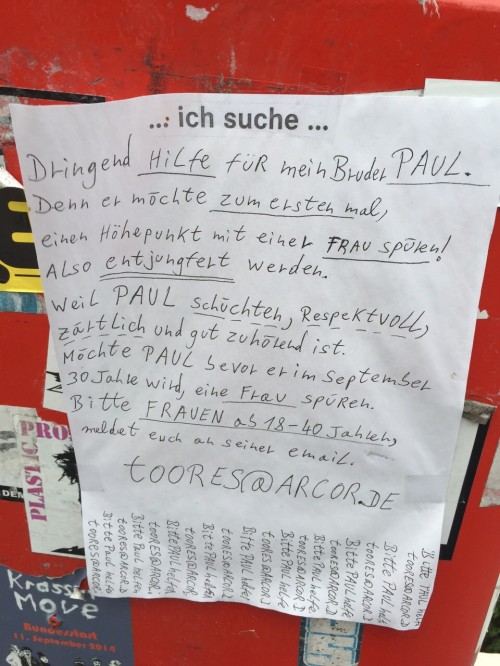 ... ich suche ...
Dringend Hilfe für mein Bruder PAUL.
Denn er möchte zum ersten mal,
einen Höhepunkt mit einer FRAU spüren!
Also entjungfert werden.
Weil PAUL schüchtern, Respektvoll,
zärtlich und gut zuhörend ist.
Möchte PAUL bevor er im September
30 Jahre wird, eine Frau spüren.
Bitte FRAUEN ab 18-40 Jahren,
meldet euch an seiner email.
toores@ARCOR.DE
Bitte PAUL helfen
toores@ARCOR.D
Bitte PAUL helfen
toores@ARCOR.D
Bitte PAUL helfe
toores@ARCOR.D
Bitte PAUL helfe
toores@ARCOR.D
Bitte PAUL helfe
toores@ARCOR.D
Bitte PAUL helfen
toores@ARCOR.D
Bitte PAUL helfen
toores@ARCOR
Bitte PAUL helfen
toores@ARCOR.
Bitte PAUL helfen
toores@ARCOR.D
Bitte PAUL helfe
toores@ARCOR
PLASTIC PRO
DEM
Krasse
Move
Bundesstart
11. September 2014